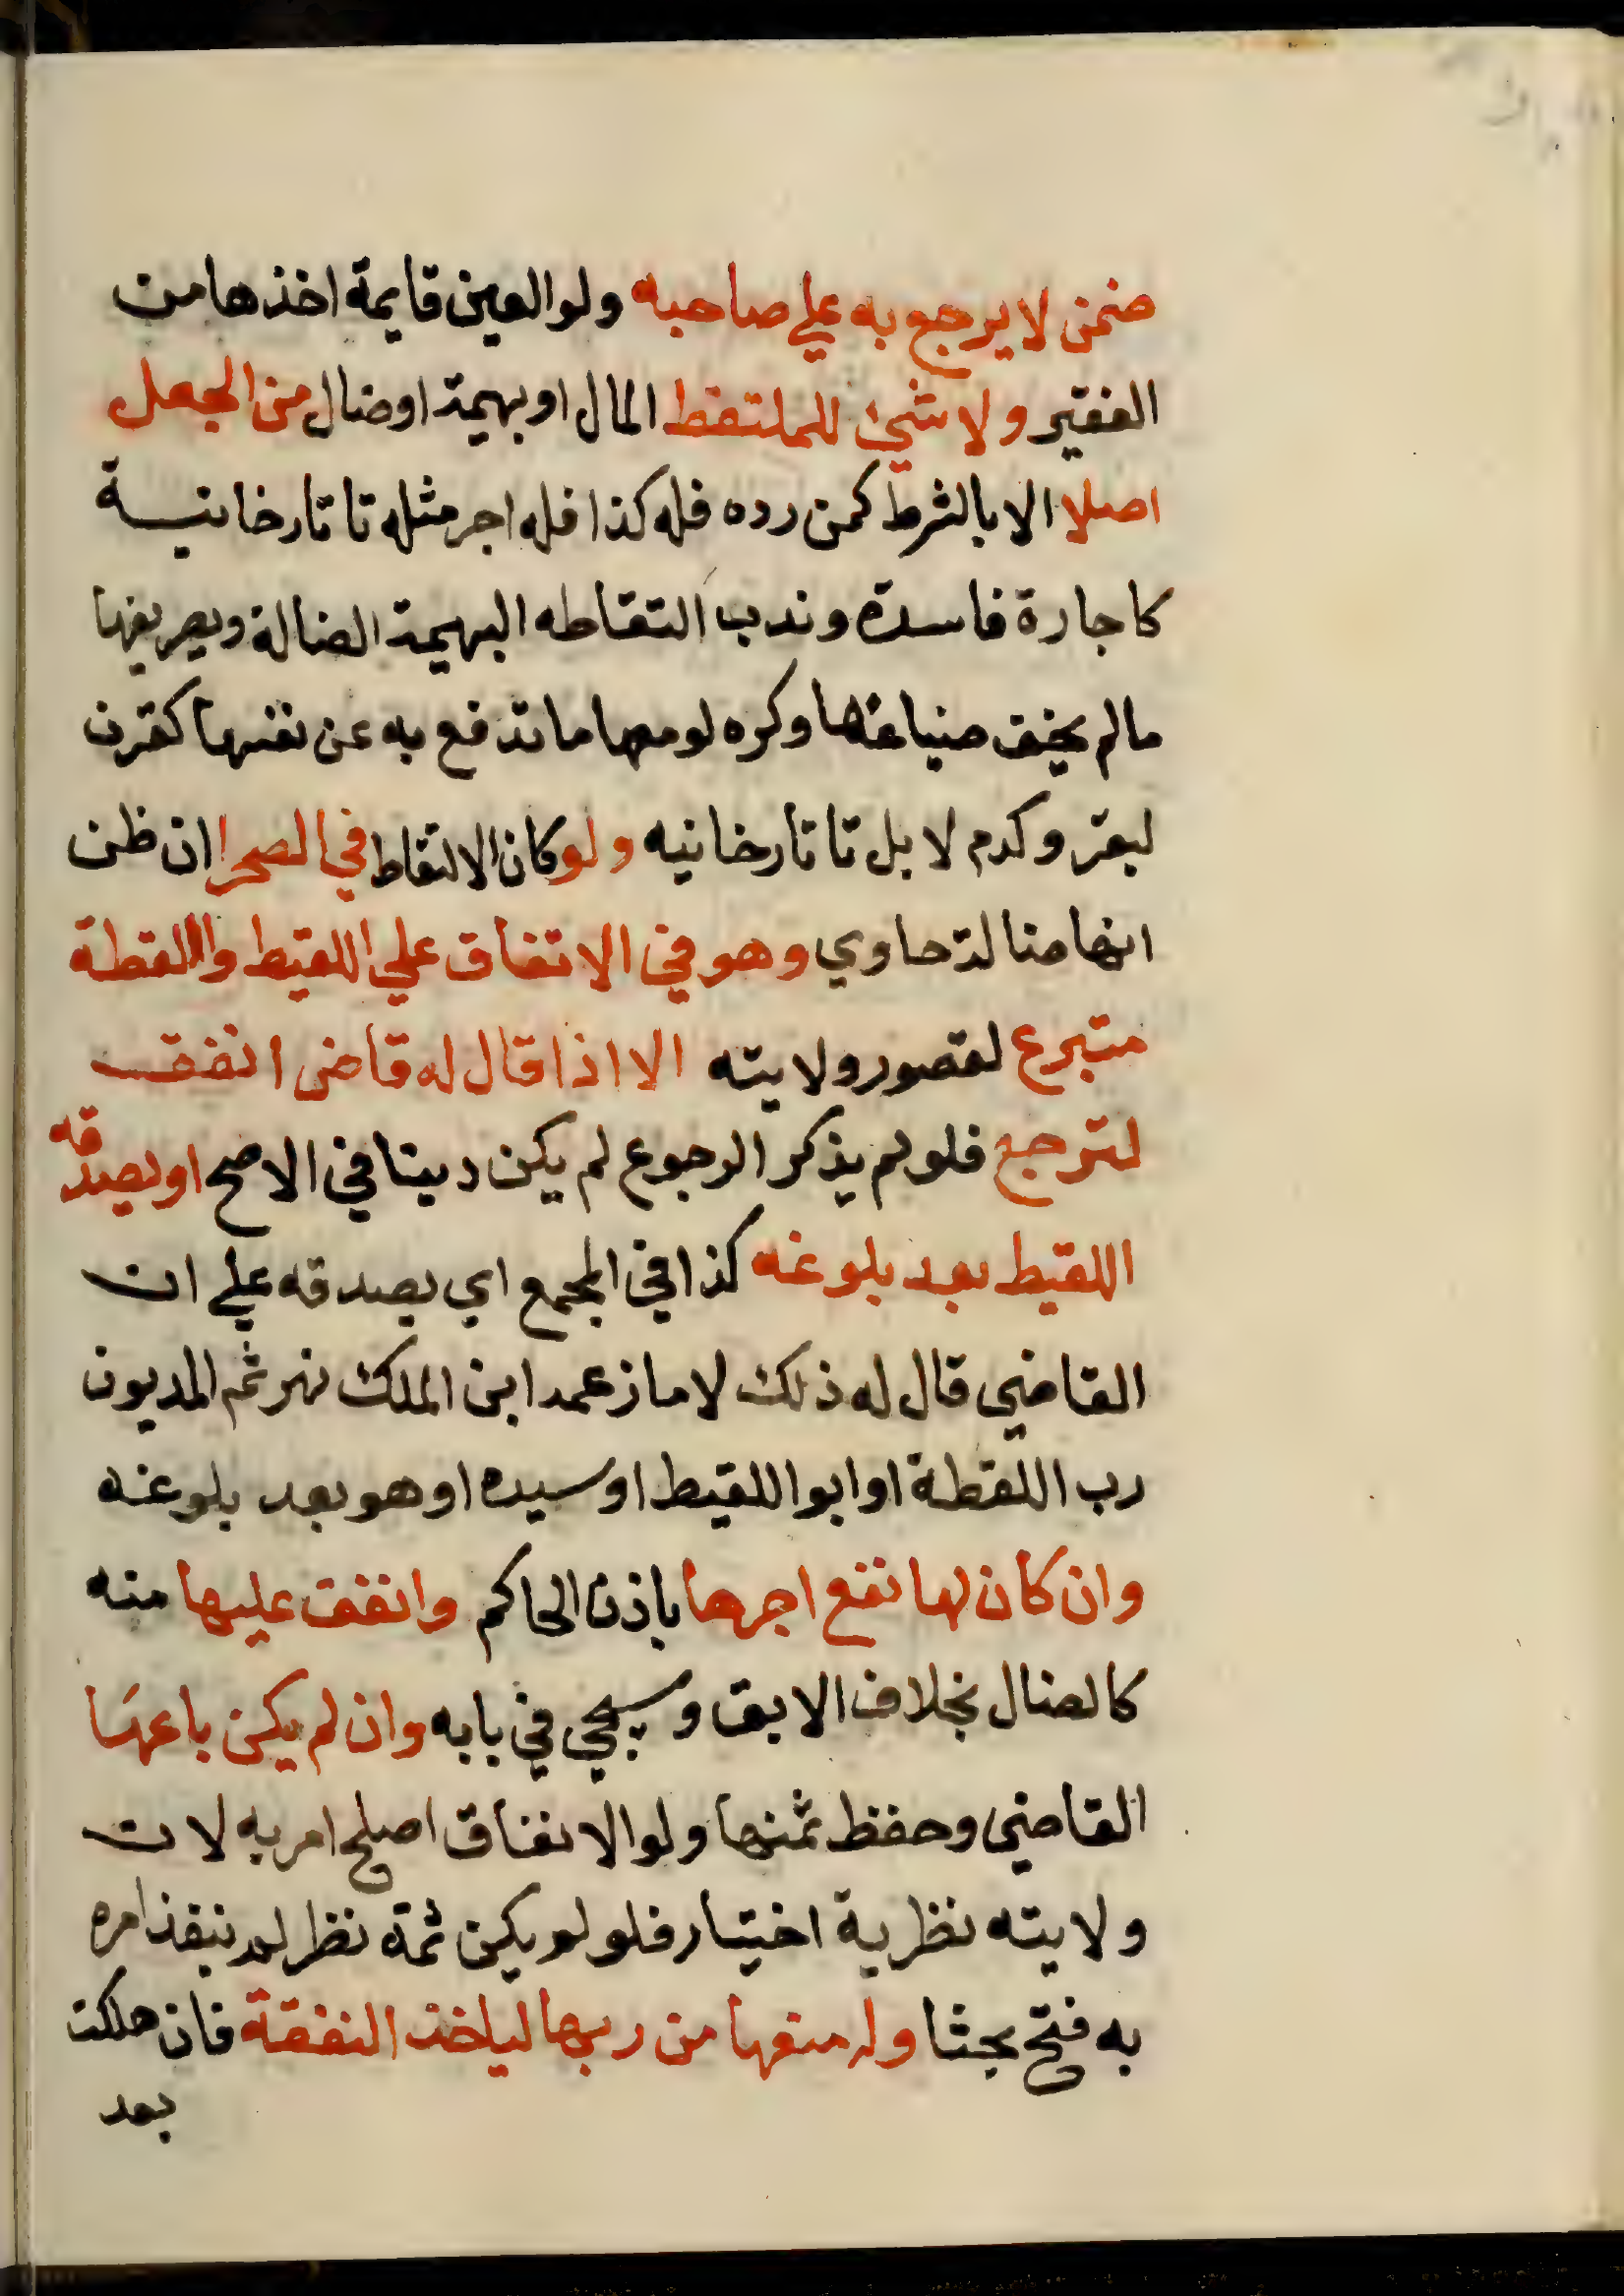 ضمن لا يرجع به علي صاحبه ولو العين قايمة اخذها من
الفقير ولا شئ للملتقط المال او بهيمة او ضال من الجعل
اصلا الا بالشرط كمن رده فله كذا فله اجر مثله تاتارخانية
كاجارة فاسدة وندب التقاطه البهيمة الضالة وتعريفها
مالم يخف ضياعها وكره لو معها ما تدفع به عن نفسها كقرن
لبقر وكدم لابل تاتارخانيه ولو كان الالتقاط في الصحرا ان ظن
انها ضالة حاوي وهو في الانفاق علي اللقيط واللقطة
متبرع لقصور ولايته الا اذا قال له قاض انفق
لترجع فلو لم يذكر الرجوع لم يكن دينا في الاصح او يصدقه
اللقيط بعد بلوغه كذا في المجمع اي يصدقه علي ان
القاضي قال له ذلك لا ما زعمه ابن الملك نهر ثم المديون
رب اللقطة او ابو اللقيط او سيده او هو بعد بلوغه
وان كان لها نفع اجرها باذن الحاكم وانفق عليها منه
كالضال بخلاف الابق وسيجي في بابه وان لم يكن باعها
القاضي وحفظ ثمنها ولو الانفاق اصلح امر به لان
ولايته نظرية اختيار فلو لم يكن ثمة نظر لم ينفذ امره
به فتح بحثا وله منعها من ربها لياخذ النفقة فان هلكت
بعد